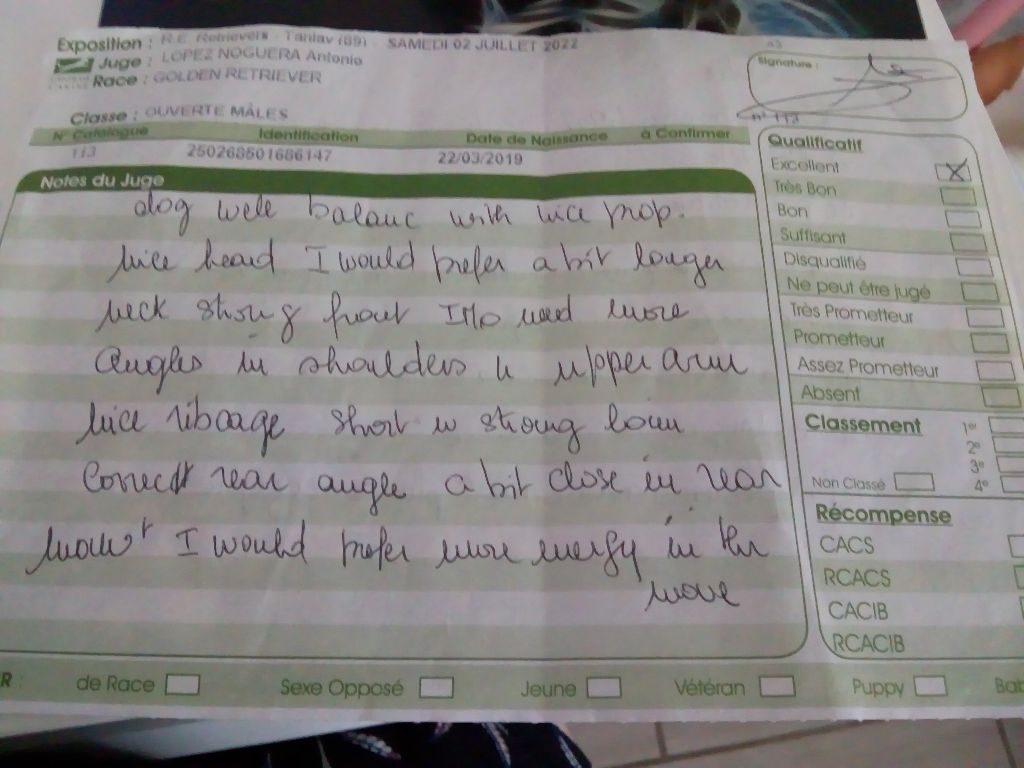 Exposition : R.E. Retrievers - Tanlay (89) - SAMEDI 02 JUILLET 2022
Juge : LOPEZ NOGUERA Antonio
Race : GOLDEN RETRIEVER
Classe : OUVERTE MÂLES
N° Catalogue Identification Date de Naissance à Confirmer
113 250268501686147 22/03/2019
Notes du Juge
dog well balanc with nice prop.
nice head I would prefer a bit longer
neck strong front need more
angles in shoulders upper arm
nice ribcage short strong loin
correct rear angle a bit close in rear
I would prefer more energy in the
move
Signature :
n° 113
Qualificatif
Excellent X
Très Bon
Bon
Suffisant
Disqualifié
Ne peut être jugé
Très Prometteur
Prometteur
Assez Prometteur
Absent
Classement 1er
2e
3e
Non Classé 4e
Récompense
CACS
RCACS
CACIB
RCACIB
R : de Race Sexe Opposé Jeune Vétéran Puppy Bab